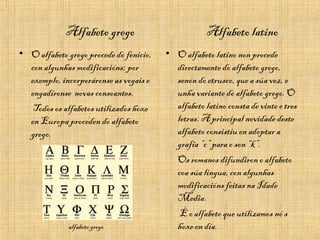 Alfabeto grego
• O alfabeto grego procede do fenicio,
con algunhas modificacións; por
exemplo, incorporáronse as vogais e
engadíronse novas consoantes.
Todos os alfabetos utilizados hoxe
en Europa proceden do alfabeto
grego.
Α Β Γ Δ Ε Ζ
Η Θ Ι Κ Λ Μ
Ν Ξ Ο Π Ρ Σ
Τ Υ Φ Χ Ψ Ω
alfabeto grego
Alfabeto latino
• O alfabeto latino non procede
directamente do alfabeto grego,
senón do etrusco, que a súa vez, e
unha variante do alfabeto grego. O
alfabeto latino consta de vinte e tres
letras. A principal novidade deste
alfabeto consistiu en adoptar a
grafía "c" para o son "k".
Os romanos difundiron o alfabeto
coa súa lingua, con algunhas
modificacións feitas na Idade
Media.
É o alfabeto que utilizamos nós
hoxe en día.